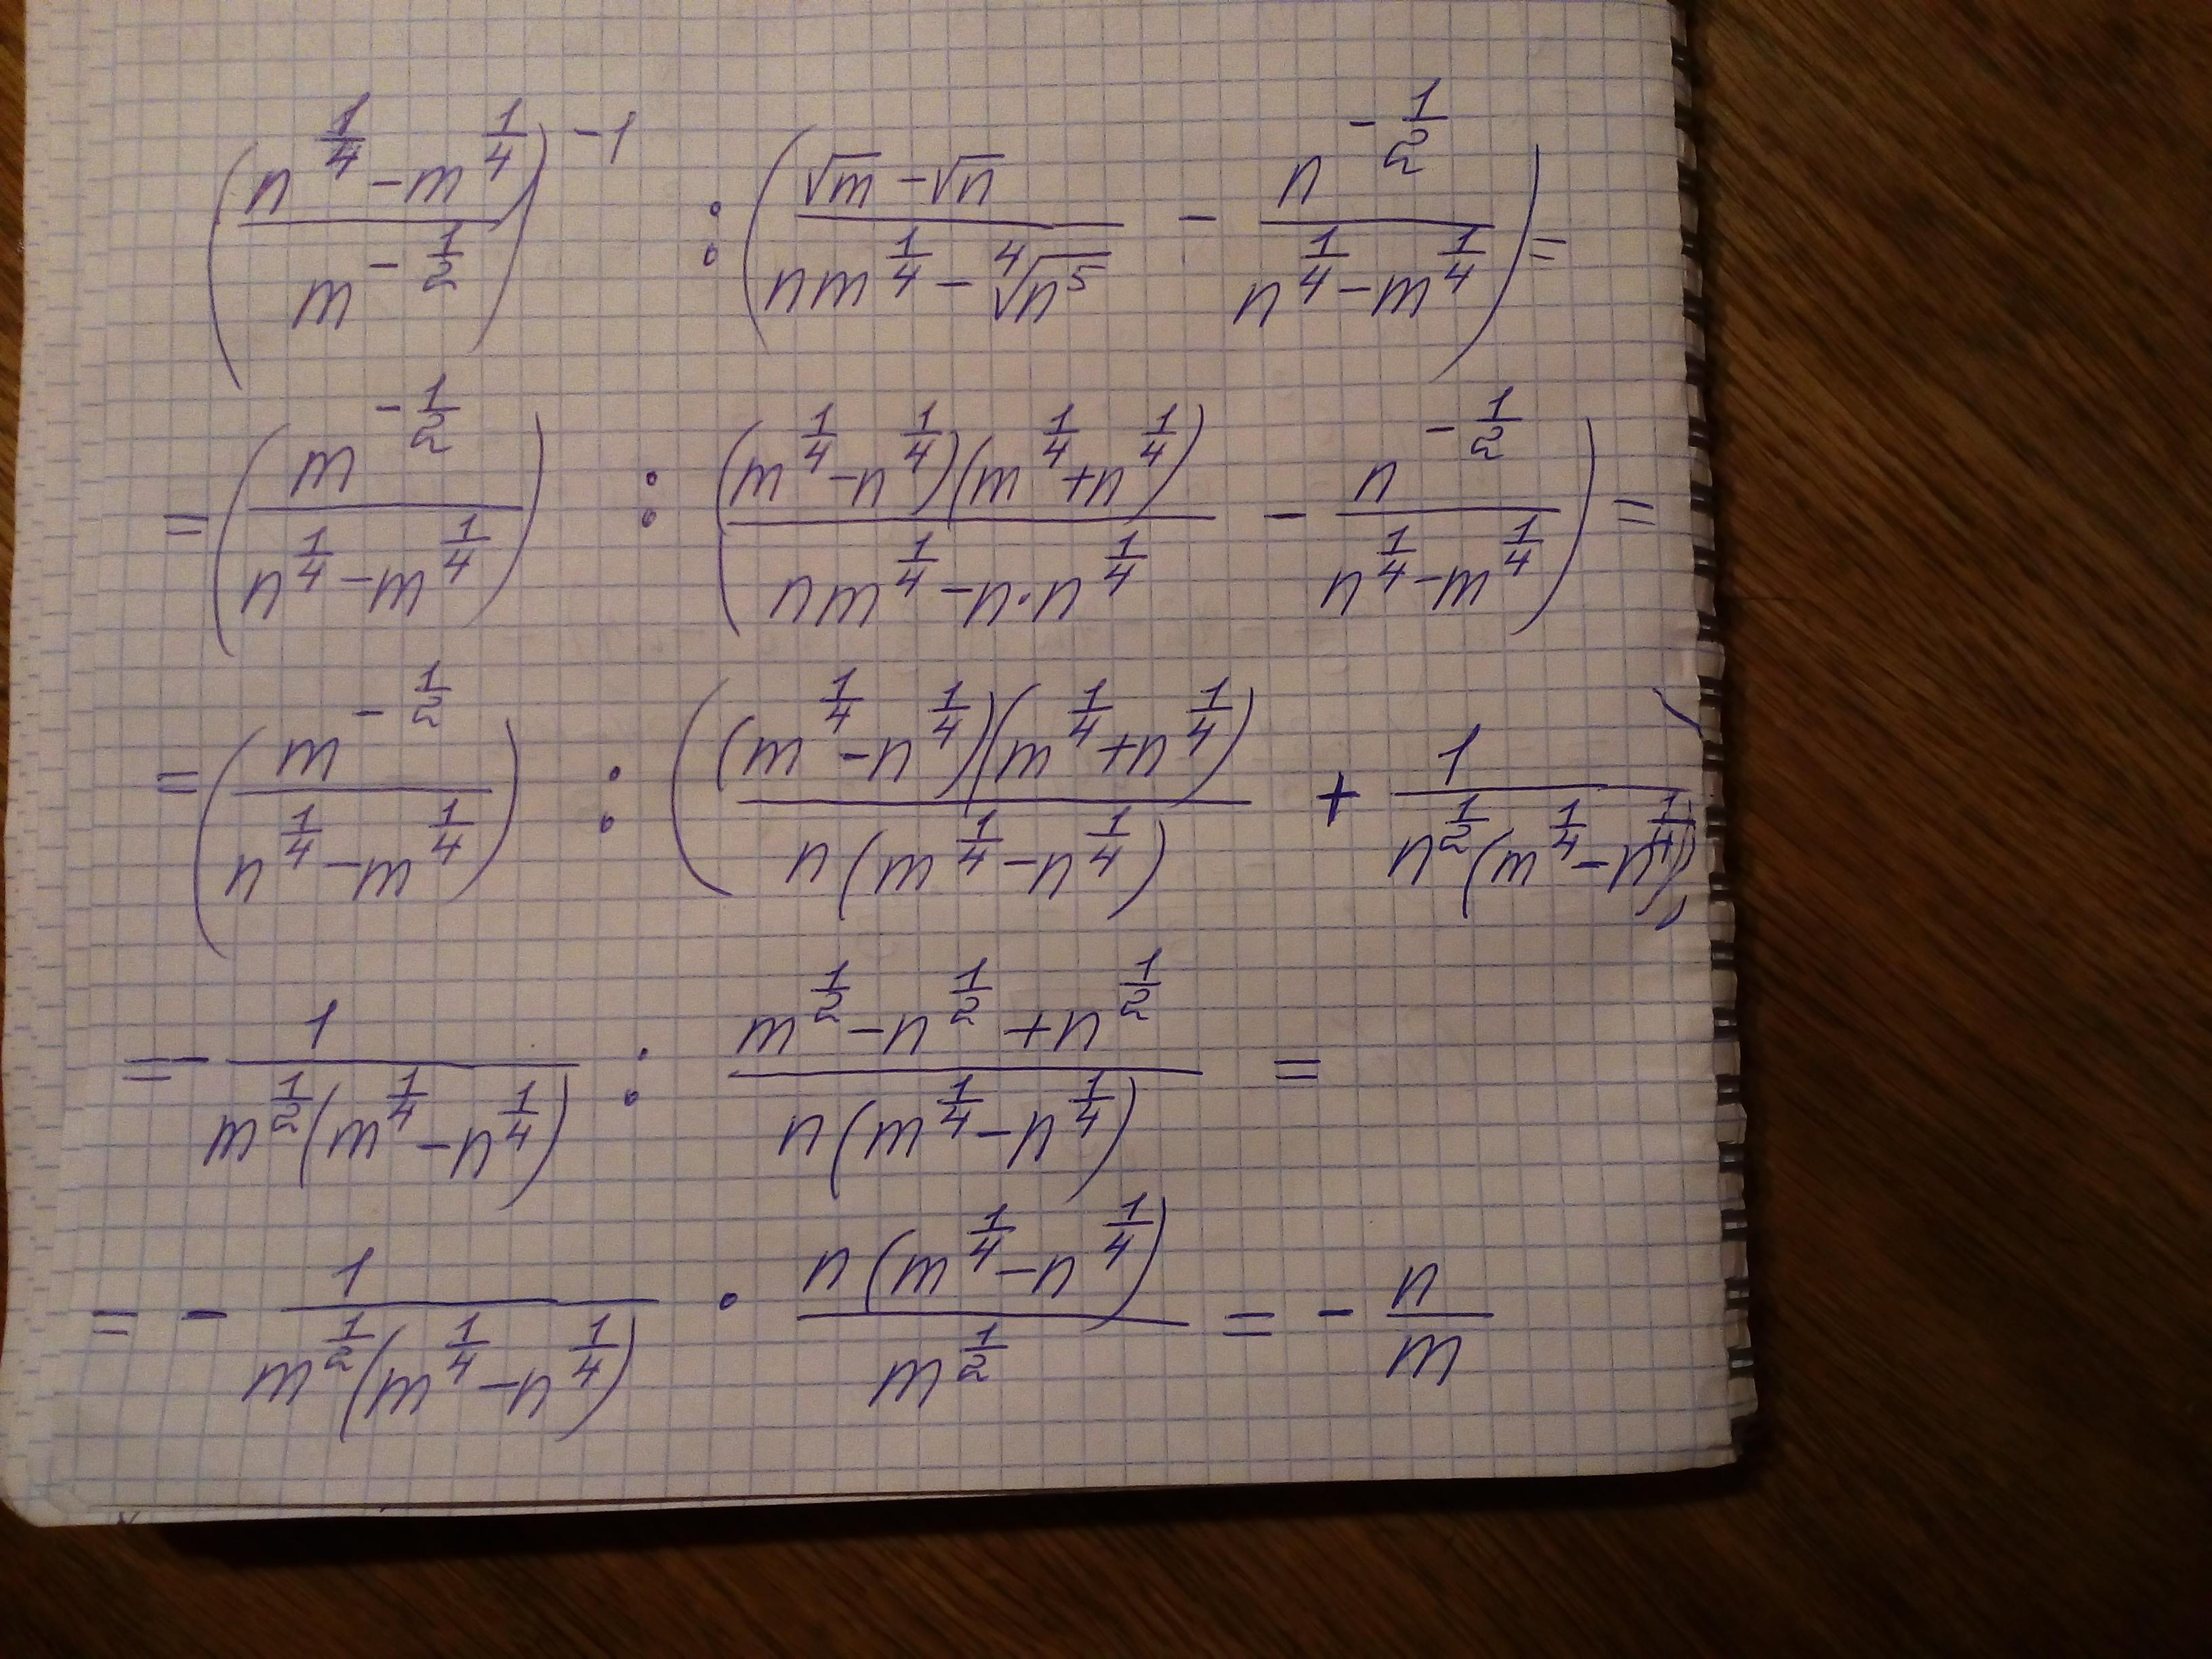 (n^{1/4} - m^{1/4} / m^{-1/2})^{-1} : (√m - √n / nm^{1/4} - ⁴√n⁵ - n^{-1/2} / n^{1/4} - m^{1/4}) =
= (m^{-1/2} / n^{1/4} - m^{1/4}) : ((m^{1/4} - n^{1/4})(m^{1/4} + n^{1/4}) / nm^{1/4} - n·n^{1/4} - n^{-1/2} / n^{1/4} - m^{1/4}) =
= (m^{-1/2} / n^{1/4} - m^{1/4}) : ((m^{1/4} - n^{1/4})(m^{1/4} + n^{1/4}) / n(m^{1/4} - n^{1/4}) + 1 / n^{1/2}(m^{1/4} - n^{1/4}))
= - 1 / m^{1/2}(m^{1/4} - n^{1/4}) : m^{1/2} - n^{1/2} + n^{1/2} / n(m^{1/4} - n^{1/4}) =
= - 1 / m^{1/2}(m^{1/4} - n^{1/4}) · n(m^{1/4} - n^{1/4}) / m^{1/2} = - n / m